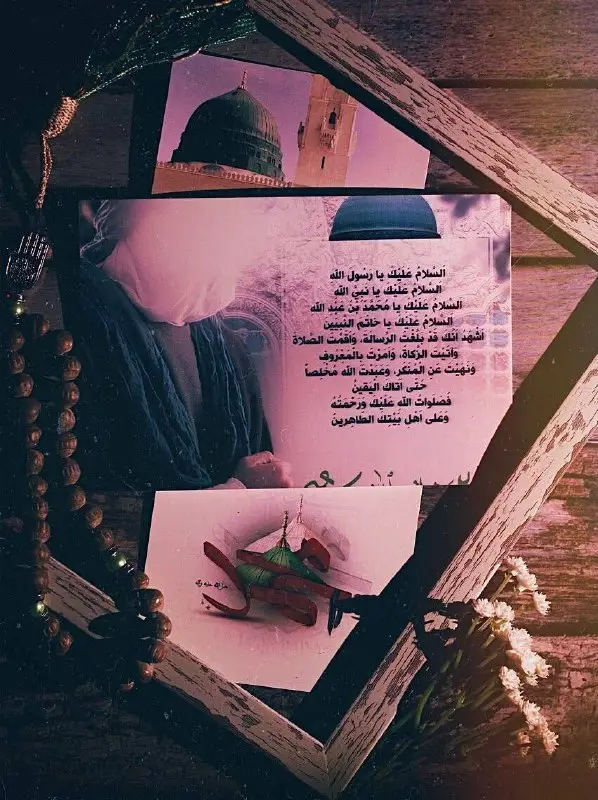 السَّلامُ عَلَيْكَ يا رَسُولَ اللّٰه
السَّلامُ عَلَيْكَ يا نَبِيَّ اللّٰه
السَّلامُ عَلَيْكَ يا مُحَمَّدَ بْنَ عَبْدِ اللّٰه
السَّلامُ عَلَيْكَ يا خاتَمَ النَّبِيّينَ
أشْهَدُ أنَّكَ قَدْ بَلَّغْتَ الرِّسالَةَ، وَأقَمْتَ الصَّلاةَ
وَآتَيْتَ الزَّكاةَ، وَأمَرْتَ بِالْمَعْرُوفِ
وَنَهَيْتَ عَنِ الْمُنْكَرِ، وَعَبَدْتَ اللّٰه مُخْلِصاً
حَتّى أتاكَ الْيَقينُ
فَصَلَواتُ اللّٰه عَلَيْكَ وَرَحْمَتُهُ
وَعَلى أهْلِ بَيْتِكَ الطّاهِرينَ